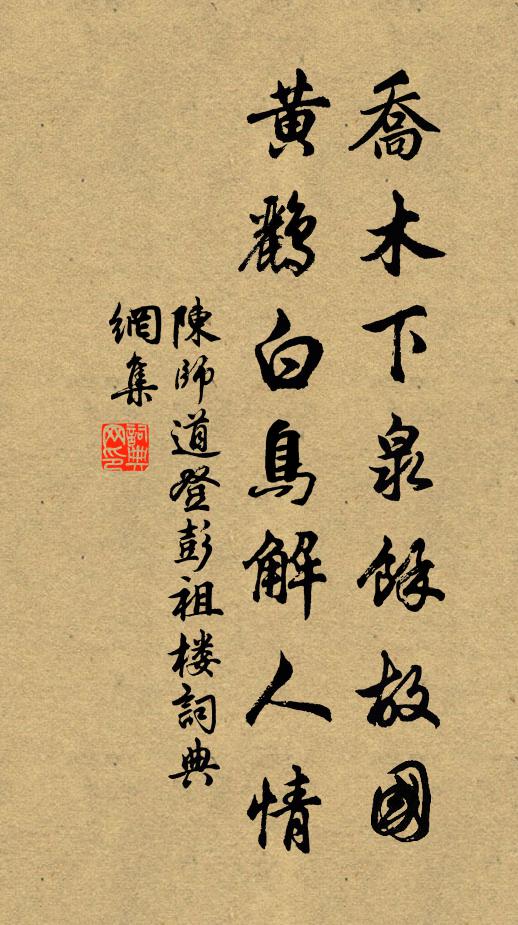 喬木下泉餘故國
黃鸝白鳥解人情
陳師道登彭祖樓詞典
網集
詞典網印